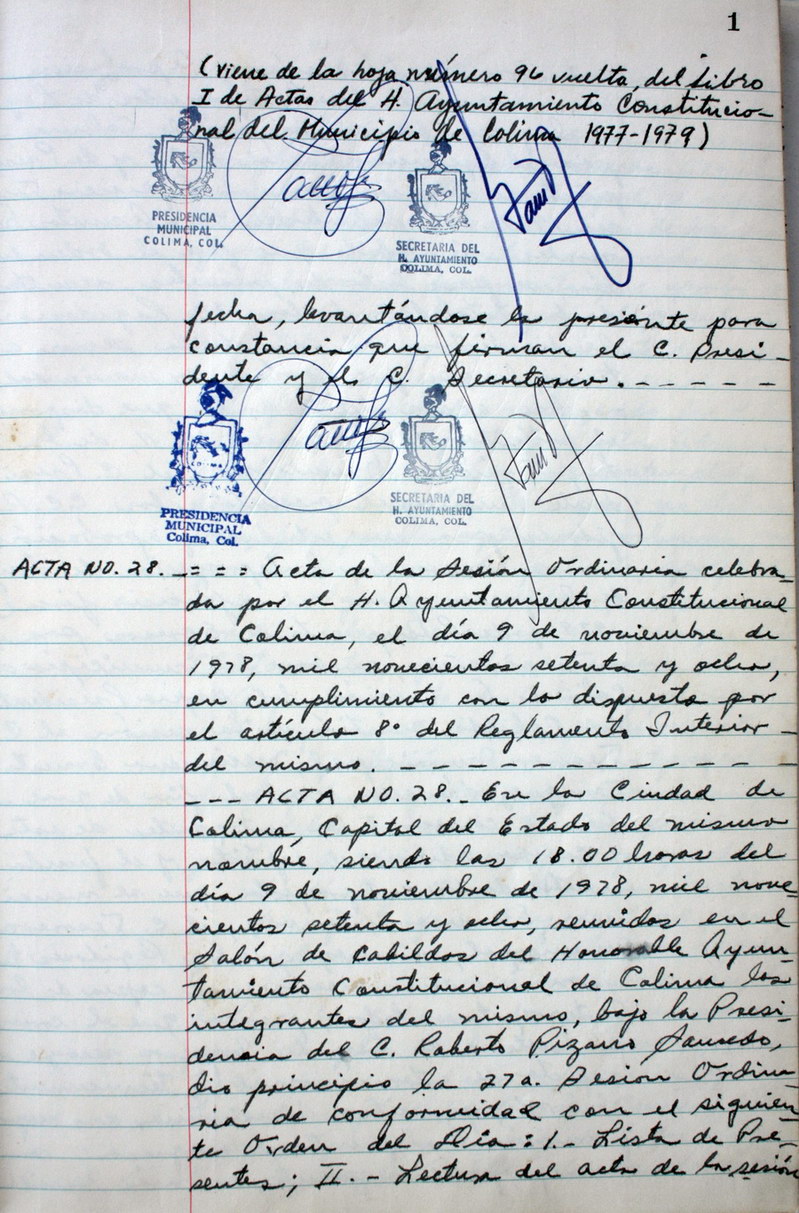 1
(viene de la hoja número 96 vuelta, del Libro
I de Actas del H. Ayuntamiento Constitucio-
nal del Municipio de Colima 1977-1979)
PRESIDENCIA
MUNICIPAL
COLIMA, COL.
SECRETARIA DEL
H. AYUNTAMIENTO
COLIMA, COL.
fecha, levantándose la presente para
constancia que firman el C. Presi-
dente y el C. Secretario. - - - - -
PRESIDENCIA
MUNICIPAL
Colima, Col.
SECRETARIA DEL
H. AYUNTAMIENTO
COLIMA, COL.
ACTA NO. 28. - = = = Acta de la Sesión Ordinaria celebra-
da por el H. Ayuntamiento Constitucional
de Colima, el día 9 de noviembre de
1978, mil novecientos setenta y ocho,
en cumplimiento con lo dispuesto por
el artículo 8° del Reglamento Interior
del mismo. - - - - - - - - - - - -
- - - ACTA NO. 28.- En la Ciudad de
Colima, Capital del Estado del mismo
nombre, siendo las 18.00 horas del
día 9 de noviembre de 1978, mil nove-
cientos setenta y ocho, reunidos en el
Salón de Cabildos del Honorable Ayun-
tamiento Constitucional de Colima los
integrantes del mismo, bajo la Presi-
dencia del C. Roberto Pizano Saucedo,
dio principio la 27a. Sesión Ordina-
ria de conformidad con el siguien-
te Orden del Día: 1.- Lista de Pre-
sentes; II.- Lectura del acta de la sesión